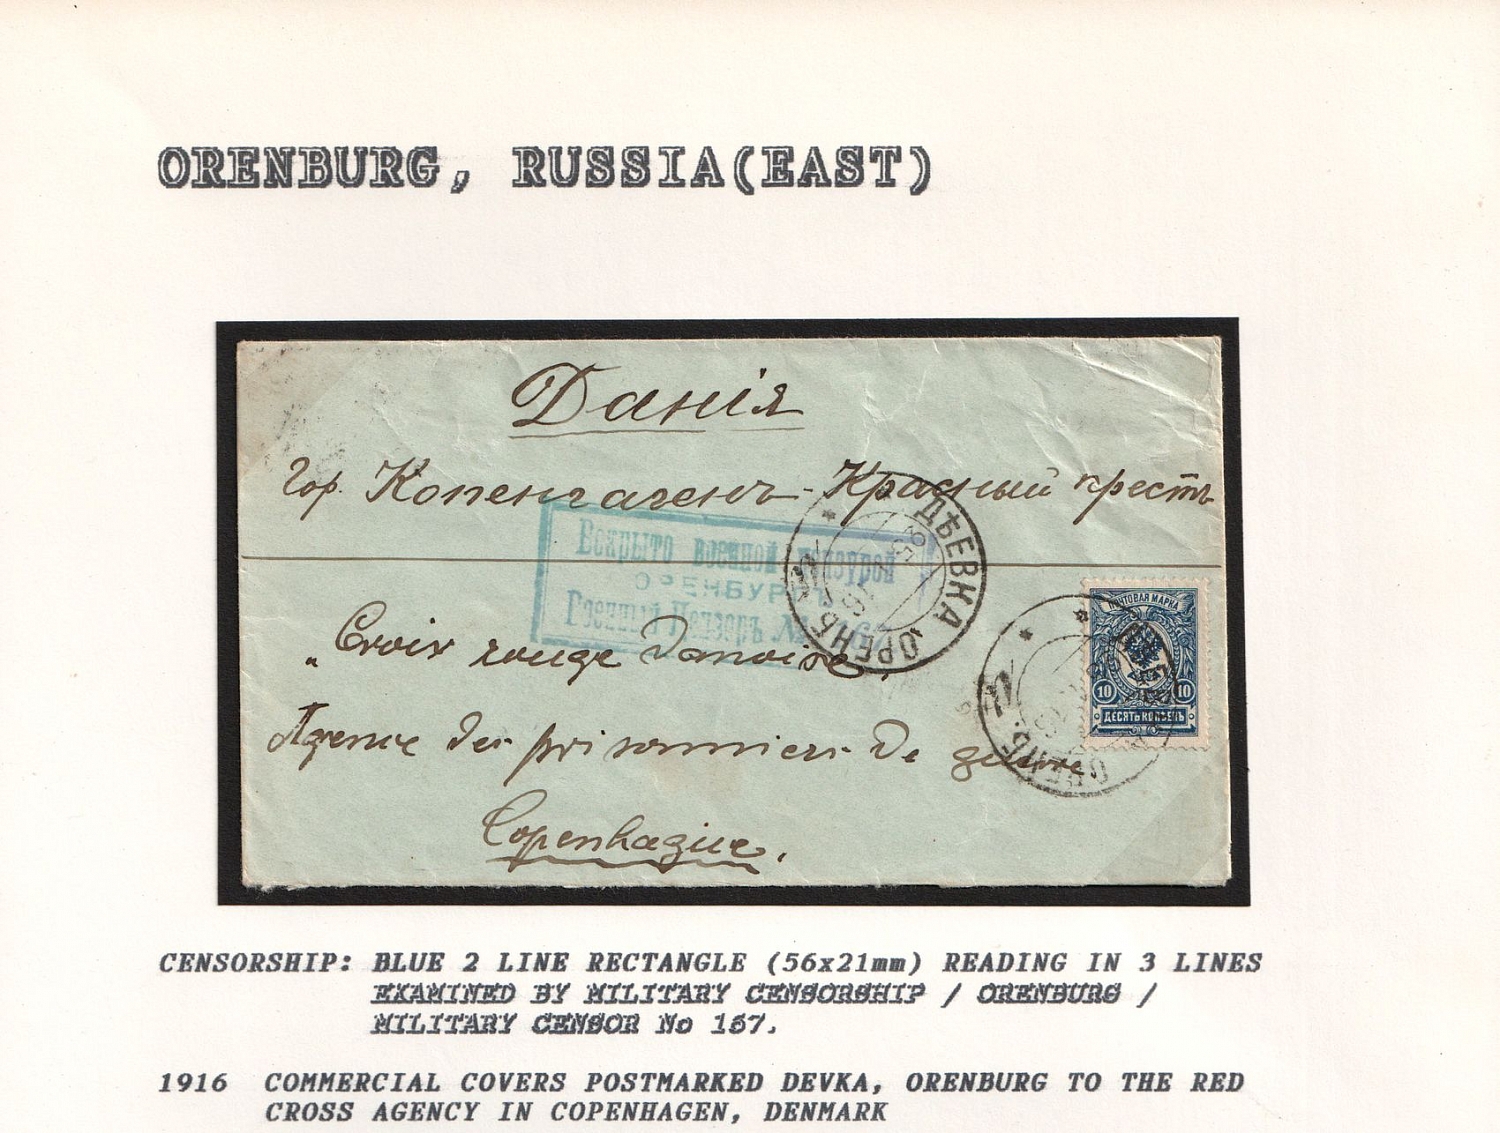 ORENBURG, RUSSIA(EAST)
Данія
Гор. Копенгагенъ - Красный крестъ
Вскрыто военной цензурой
ОРЕНБУРГЪ
Военный Цензоръ №
ДѢЕВКА ОРЕНБ.
„Croix rouge Danoise„
Agence des prisonniers de guerre
Copenhague.
ПОЧТОВАЯ МАРКА
10 10
ДЕСЯТЬ КОПѢЕКЪ
ОРЕНБ.
CENSORSHIP: BLUE 2 LINE RECTANGLE (56x21mm) READING IN 3 LINES
EXAMINED BY MILITARY CENSORSHIP / ORENBURG /
MILITARY CENSOR No 167.
1916 COMMERCIAL COVERS POSTMARKED DEVKA, ORENBURG TO THE RED
CROSS AGENCY IN COPENHAGEN, DENMARK